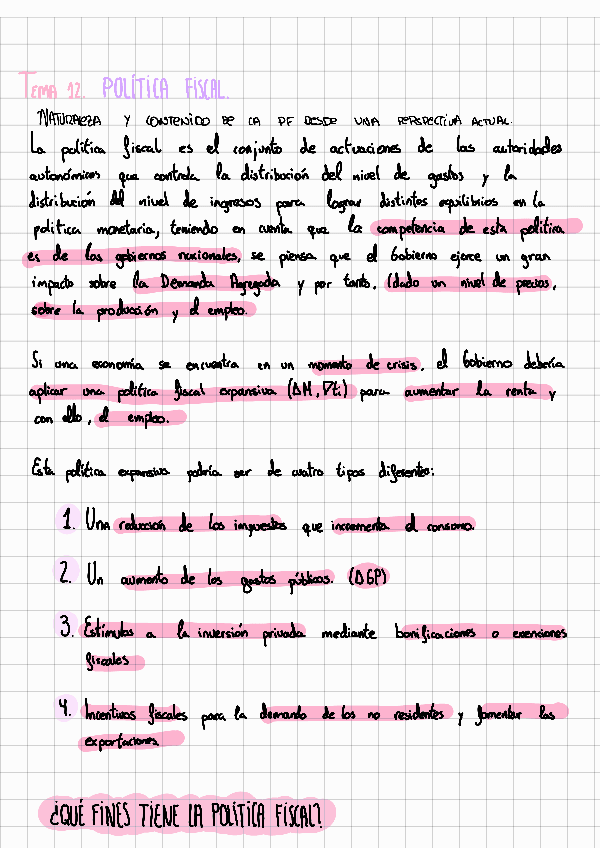 TEMA 12. POLÍTICA FISCAL.
NATURALEZA Y CONTENIDO DE LA PF DESDE UNA PERSPECTIVA ACTUAL.
La política fiscal es el conjunto de actuaciones de las autoridades
autonómicas que controla la distribución del nivel de gastos y la
distribución del nivel de ingresos para lograr distintos equilibrios en la
política monetaria, teniendo en cuenta que la competencia de esta política
es de los gobiernos nacionales, se piensa que el Gobierno ejerce un gran
impacto sobre la Demanda Agregada y por tanto, (dado un nivel de precios,
sobre la producción y el empleo.
Si una economía se encuentra en un momento de crisis, el Gobierno debería
aplicar una política fiscal expansiva (ΔM, ∇ti) para aumentar la renta y
con ello, el empleo.
Esta política expansiva podría ser de cuatro tipos diferentes:
1. Una reducción de los impuestos que incrementa el consumo.
2. Un aumento de los gastos públicos. (ΔGP)
3. Estímulos a la inversión privada mediante bonificaciones o exenciones
fiscales
4. Incentivos fiscales para la demanda de los no residentes y fomentar las
exportaciones.
¿QUÉ FINES TIENE LA POLÍTICA FISCAL?